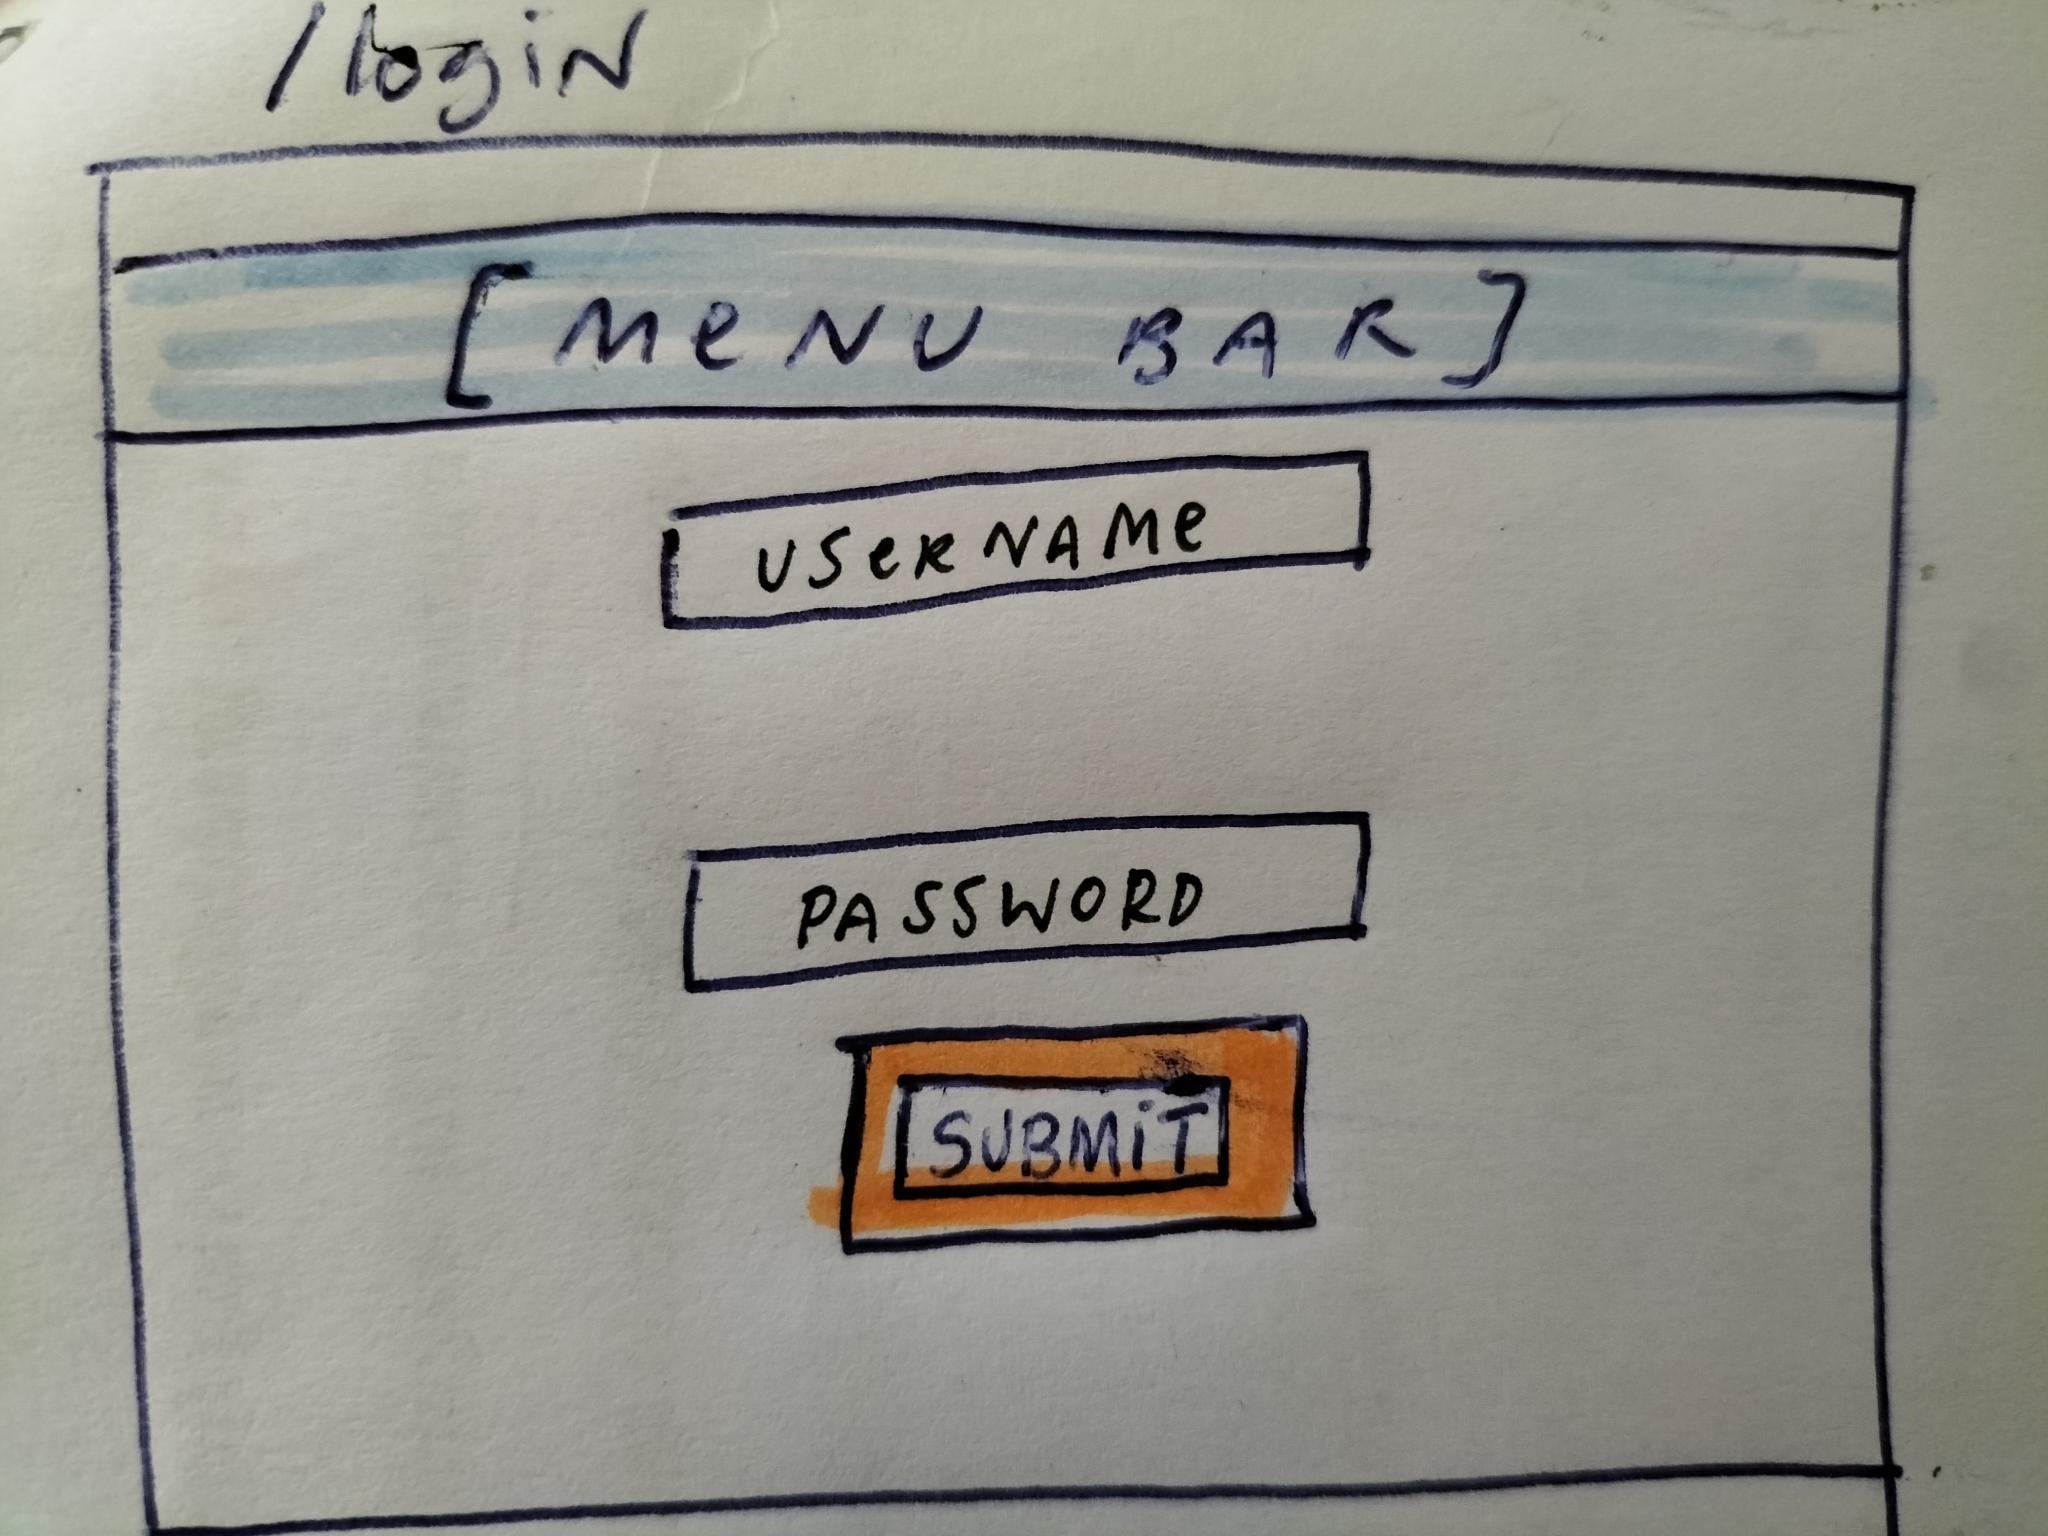 /login
[MeNU BAR]
USeRNAMe
PASSWORD
SUBMiT